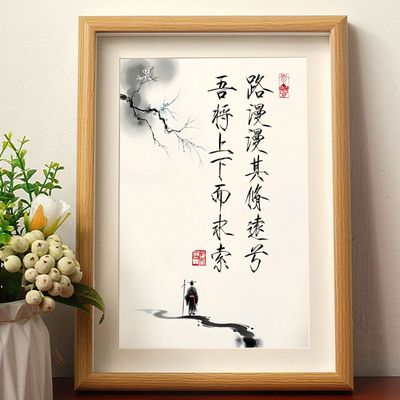 路漫漫其修远兮
吾将上下而求索